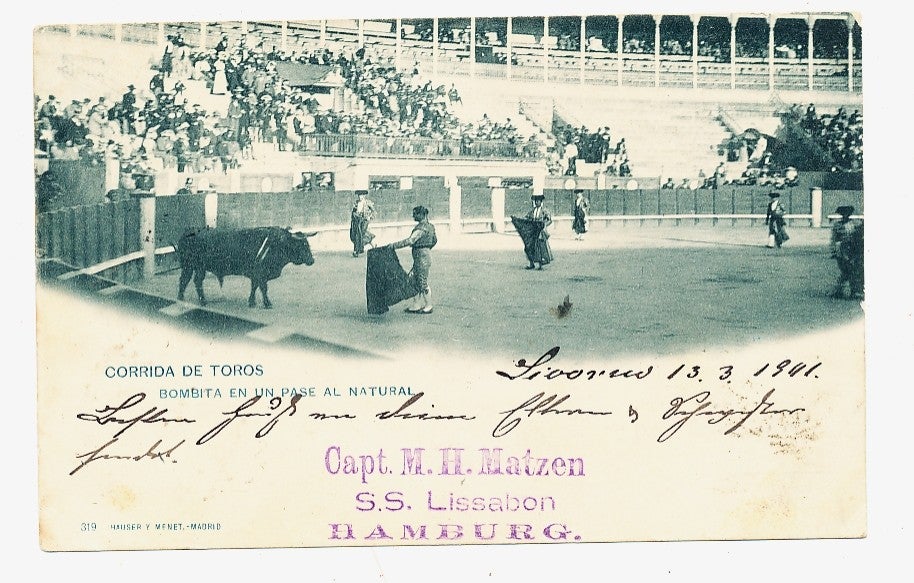 CORRIDA DE TOROS
BOMBITA EN UN PASE AL NATURAL
Livorno 13. 3. 1901.
Besten Gruß an deine Eltern & Schwester
sendet.
Capt. M. H. Matzen
S.S. Lissabon
HAMBURG.
319 HAUSER Y MENET.-MADRID